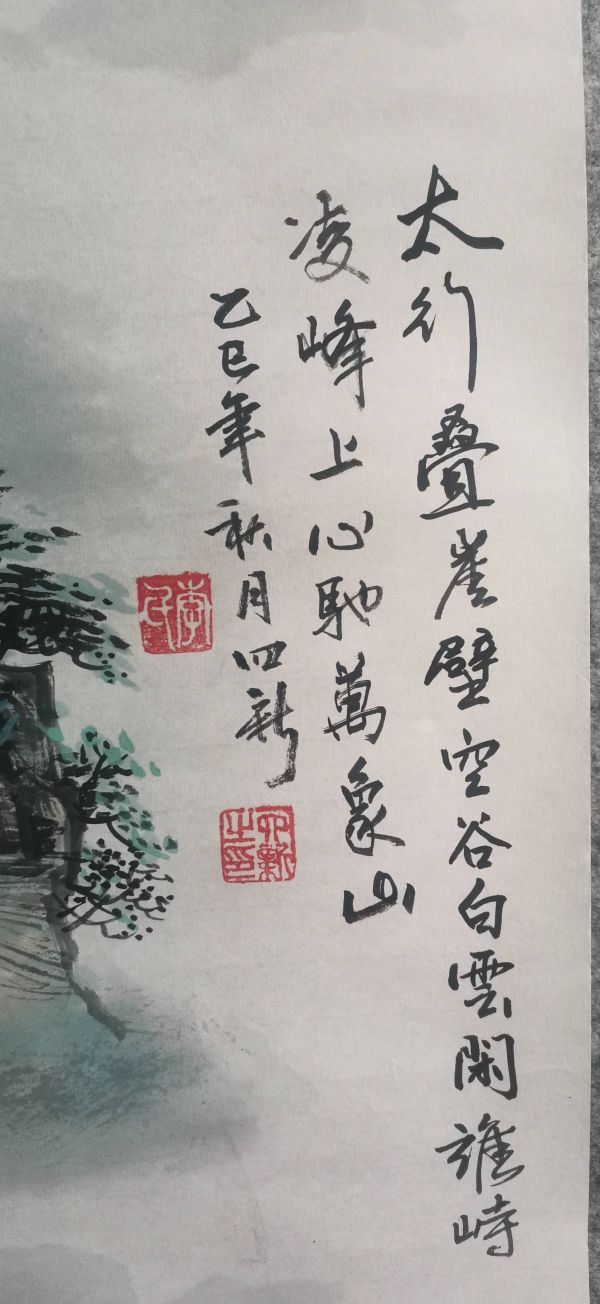 太行疊崖壁空谷白雲閑誰峙
凌峰上心馳萬象山
乙巳年秋月四新
李
四新之印